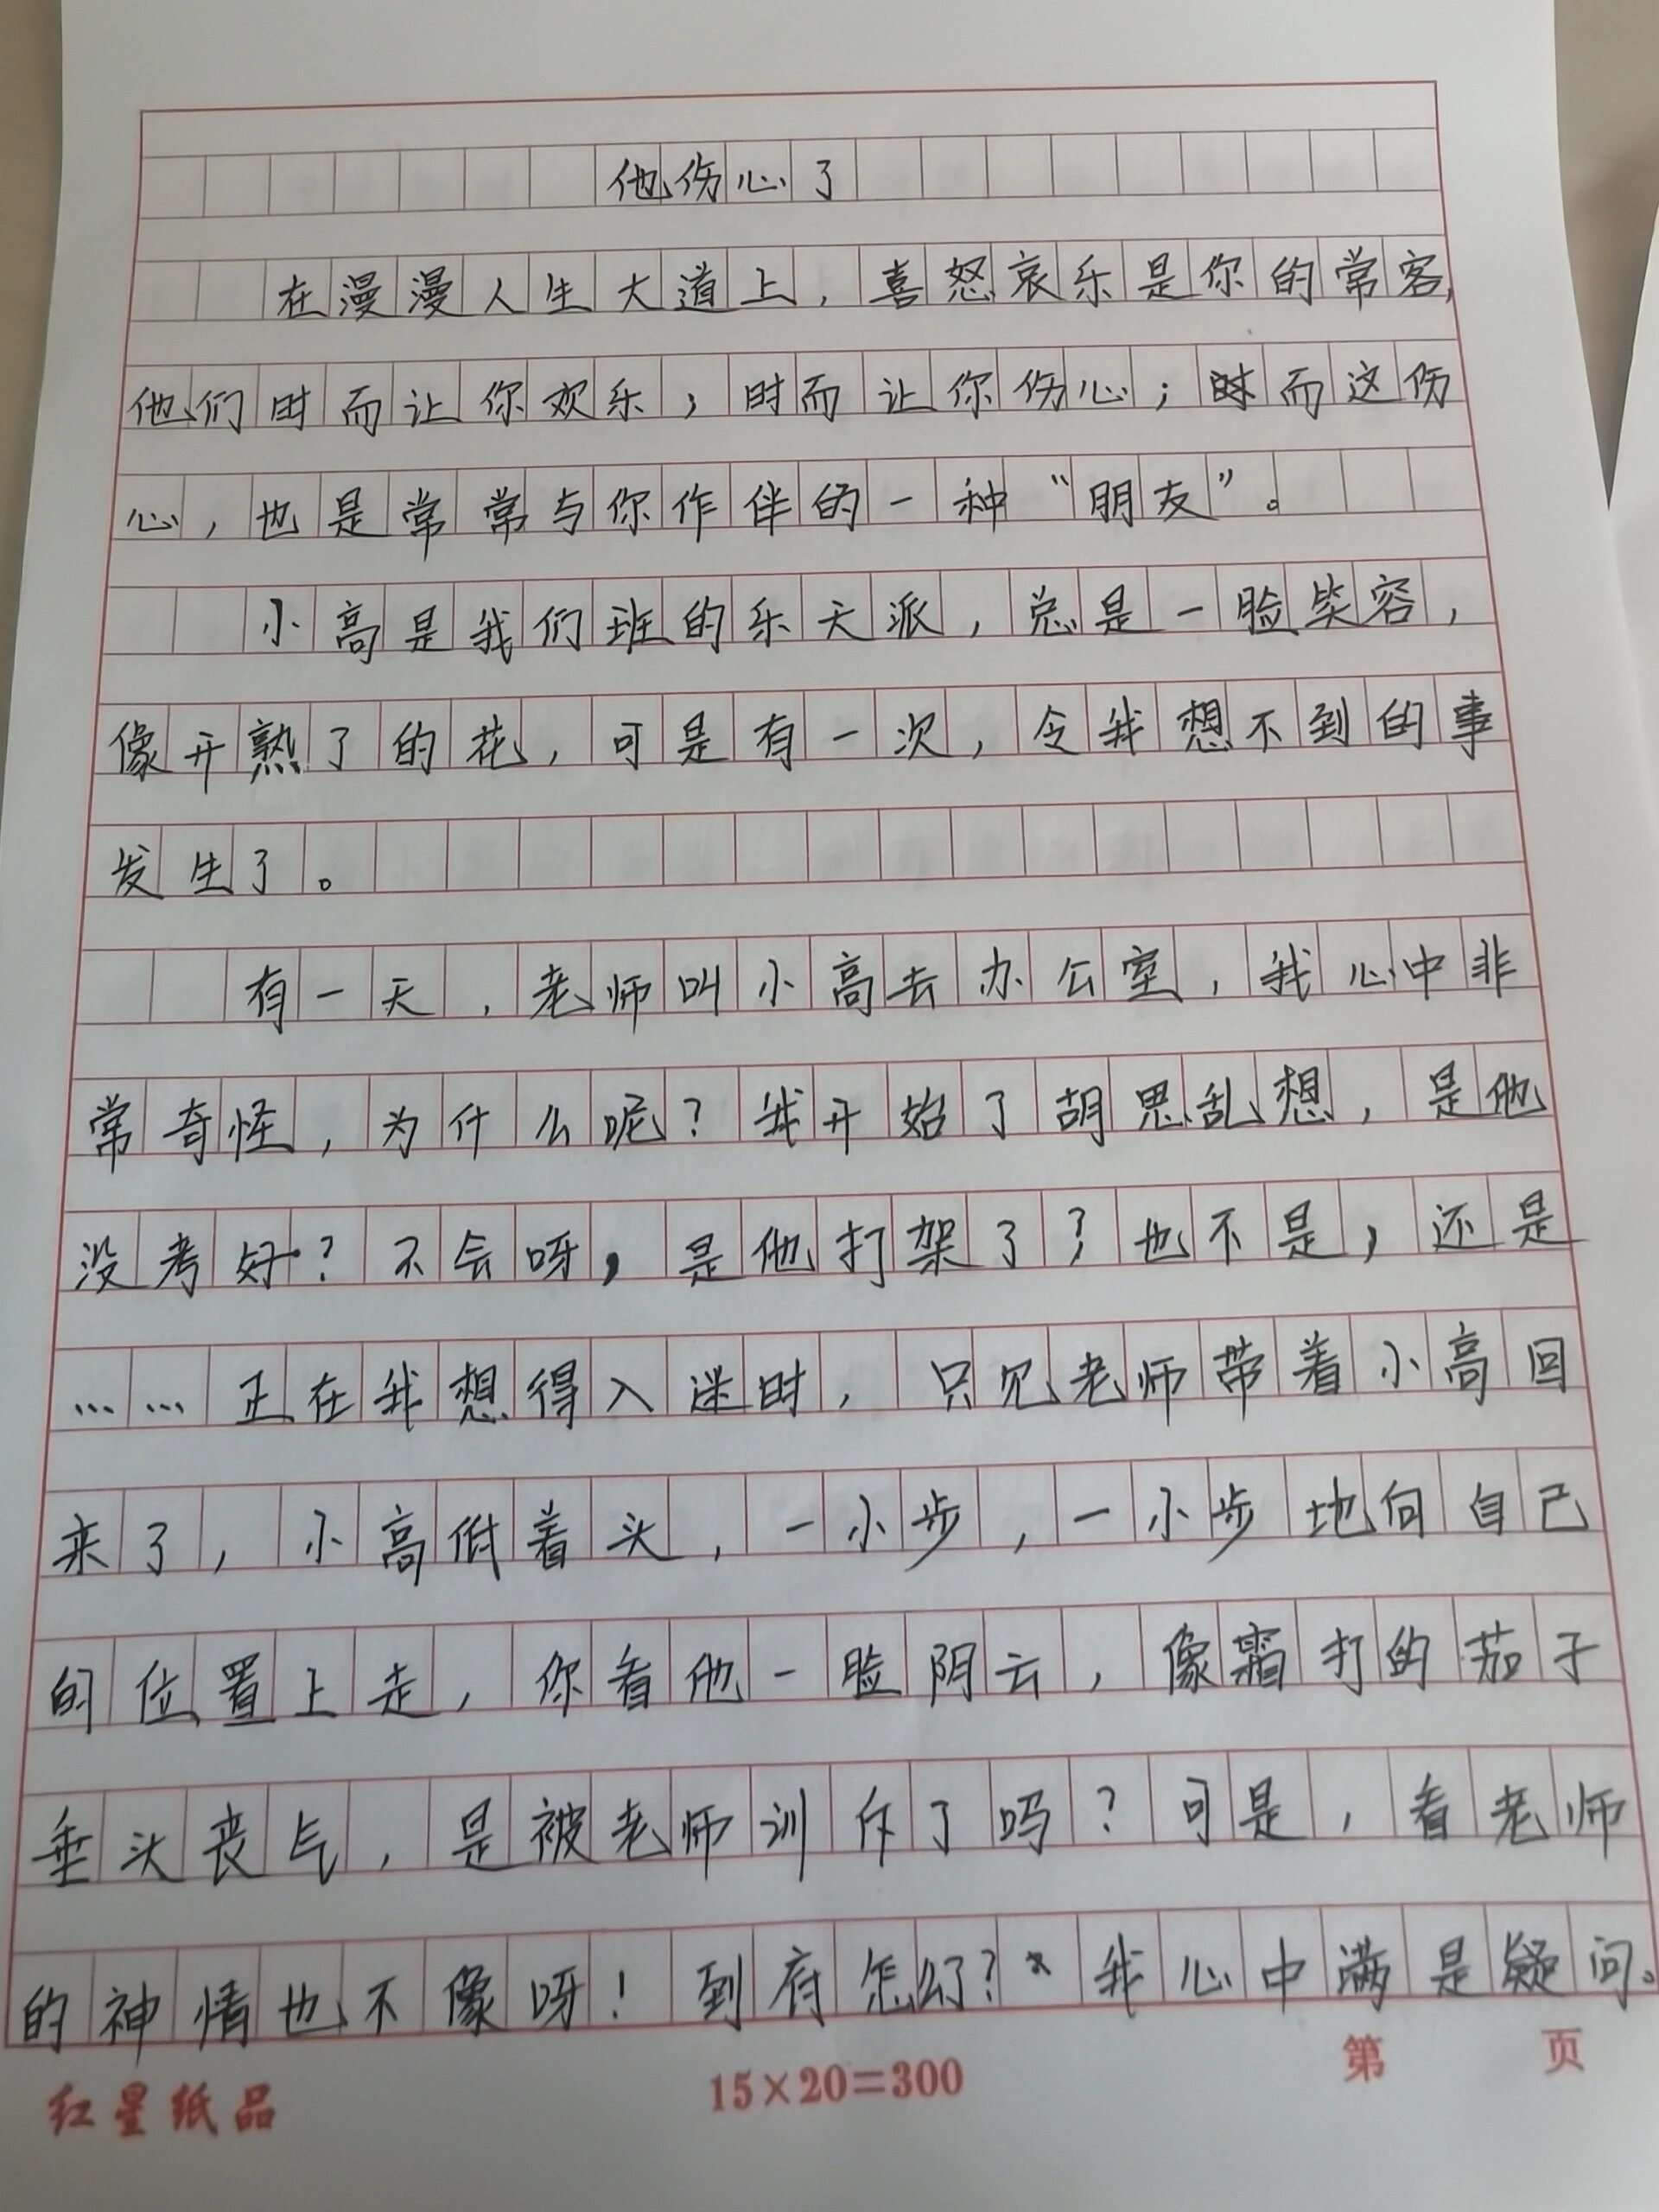 他伤心了
在漫漫人生大道上，喜怒哀乐是你的常客，
他们时而让你欢乐；时而让你伤心；时而这伤
心，也是常常与你作伴的一种“朋友”。
小高是我们班的乐天派，总是一脸笑容，
像开熟了的花，可是有一次，令我想不到的事
发生了。
有一天，老师叫小高去办公室，我心中非
常奇怪，为什么呢？我开始了胡思乱想，是他
没考好？不会呀，是他打架了？也不是，还是
……正在我想得入迷时，只见老师带着小高回
来了，小高低着头，一小步，一小步地向自己
的位置上走，你看他一脸阴云，像霜打的茄子
垂头丧气，是被老师训斥了吗？可是，看老师
的神情也不像呀！到府怎么了？我心中满是疑问。
红星纸品
15×20=300
第 页